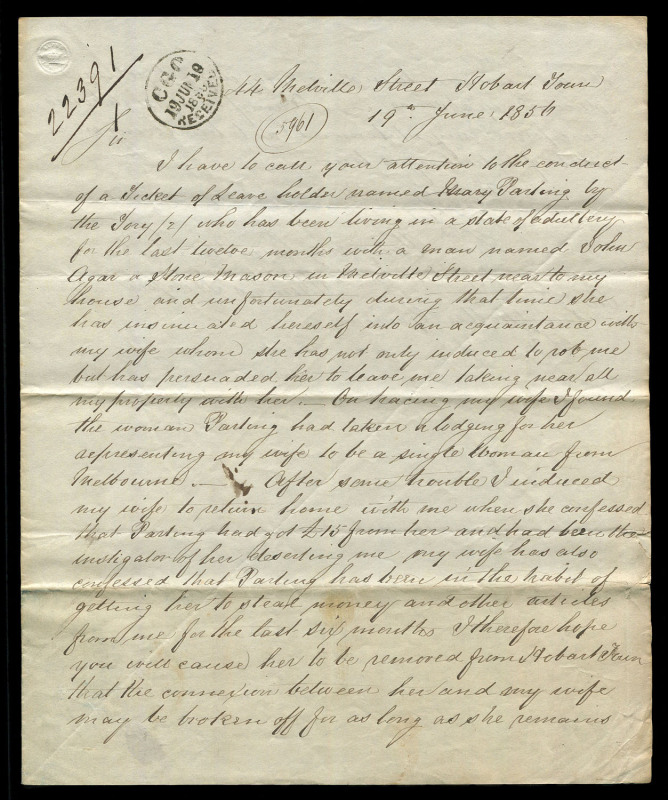 22391
1
CGO
19 JUN 19
RECEIVED
44 Melville Street Hobart Town
5961
19th June 1856
Sir
I have to call your attention to the conduct
of a Ticket of Leave holder named Mary Parting by
the Tory /2/ who has been living in a state of adultery
for the last twelve months with a man named John
Agar a Stone Mason in Melville Street near to my
house and unfortunately during that time she
has insinuated hereself into an acquaintance with
my wife whom she has not only induced to rob me
but has persuaded her to leave me taking near all
my property with her. — On tracing my wife I found
the woman Parting had taken a lodging for her
representing my wife to be a single woman from
Melbourne. — After some trouble I induced
my wife to return home with me when she confessed
that Parting had got £15 from her and had been the
instigator of her deserting me my wife has also
confessed that Parting has been in the habit of
getting her to steal money and other articles
from me for the last six months I therefore hope
you will cause her to be removed from Hobart Town
that the connexion between her and my wife
may be broken off for as long as she remains